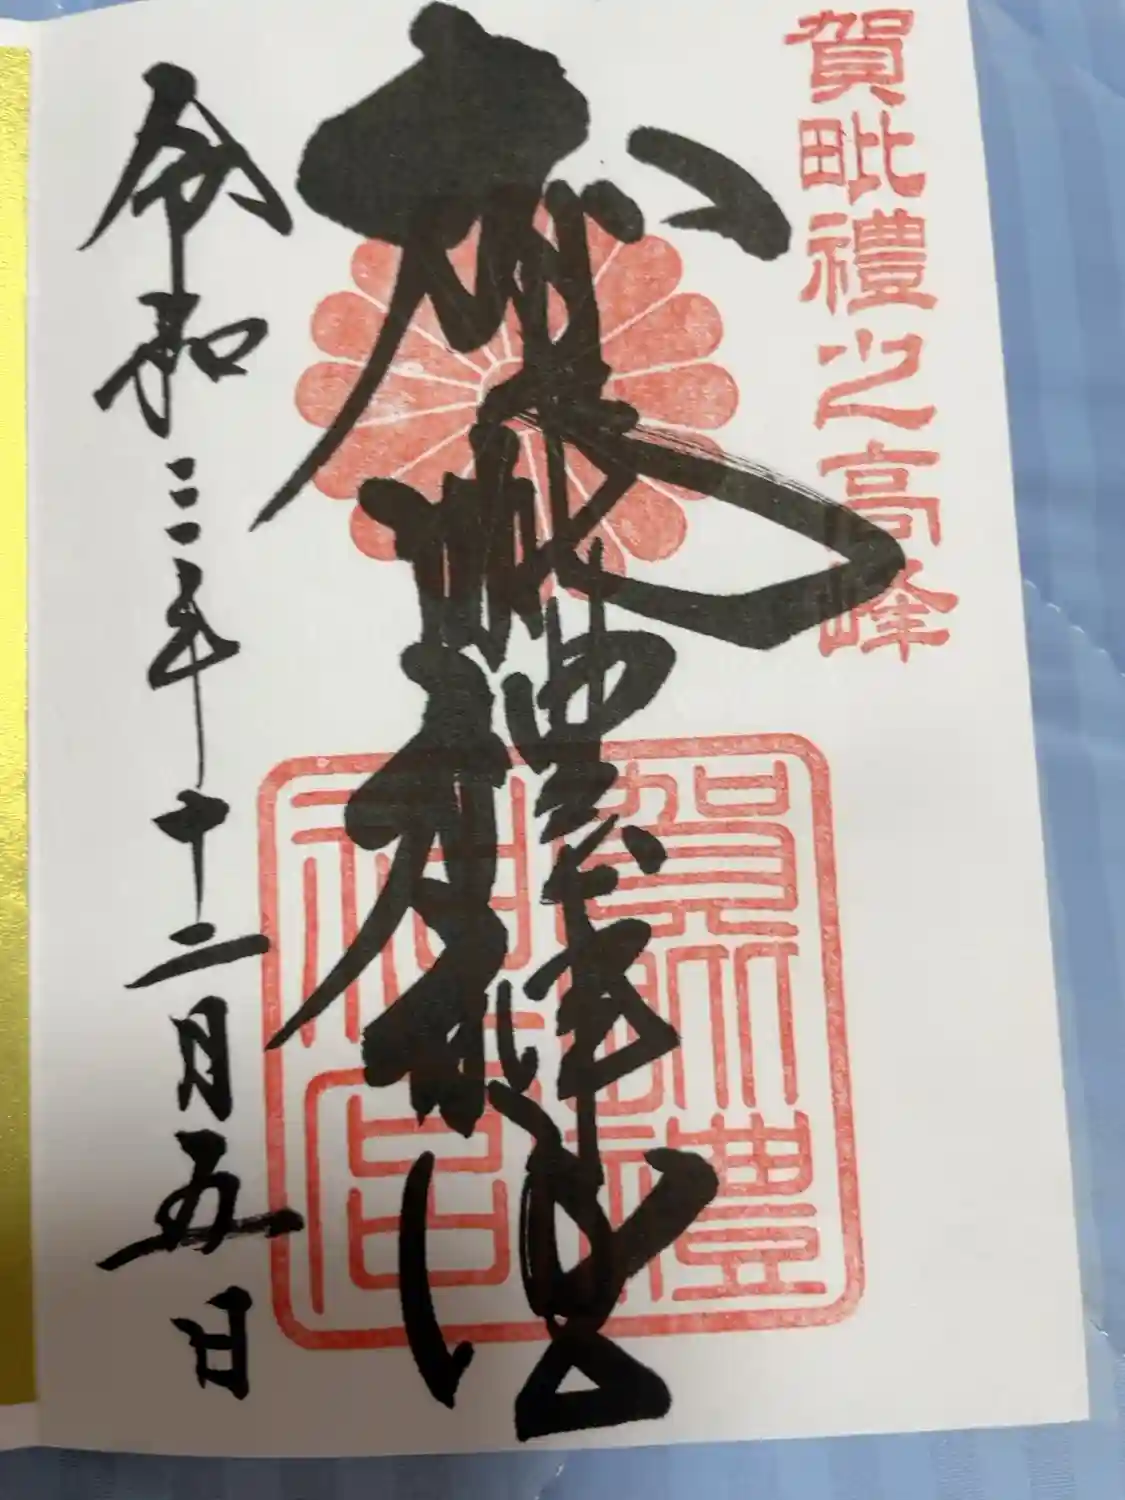 賀毗禮之高峰
賀毗禮神宮
賀毗禮神宮
令和三年十二月五日